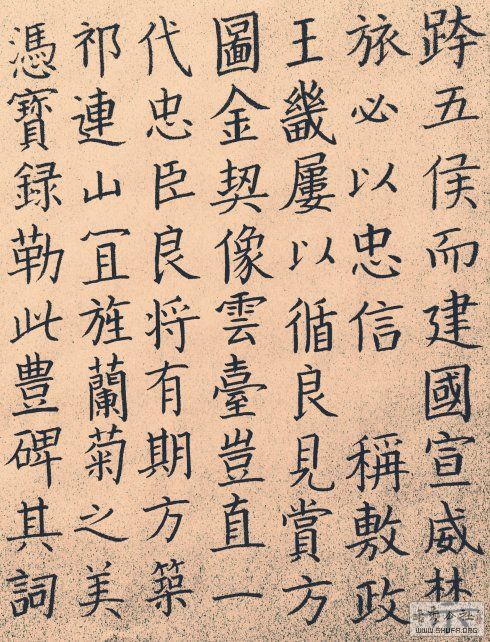 跨五侯而建國宣威禁
旅必以忠信 稱敷政
王畿屢以循良見賞方
圖金契像雲臺豈直一
代忠臣良将有期方築
祁連山冝旌蘭菊之美
憑寶録勒此豊碑其詞
WWW.SHUFA.ORG